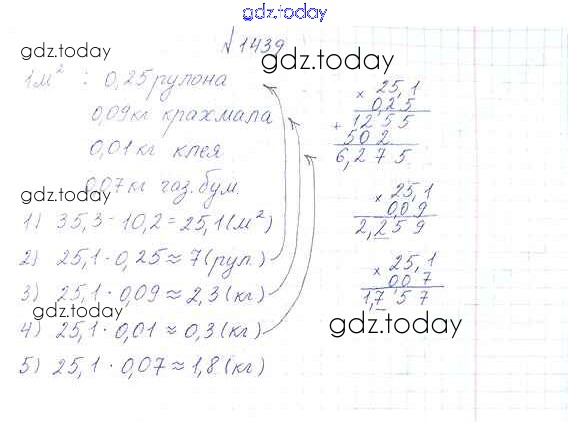 gdz.today
№1439
gdz.today
gdz.today
1м² : 0,25 рулона
0,09кг крахмала
0,01кг клея
gdz.today
0,07кг газ.бум.
1) 35,3-10,2=25,1(м²)
2) 25,1·0,25≈7(рул.)
3) 25,1·0,09≈2,3(кг)
gdz.today
4) 25,1·0,01≈0,3(кг)
5) 25,1·0,07≈1,8(кг)
× 25,1
0,25
gdz.today
1255
+
502
6,275
× 25,1
0,09
2,259
× 25,1
0,07
1,757
gdz.today